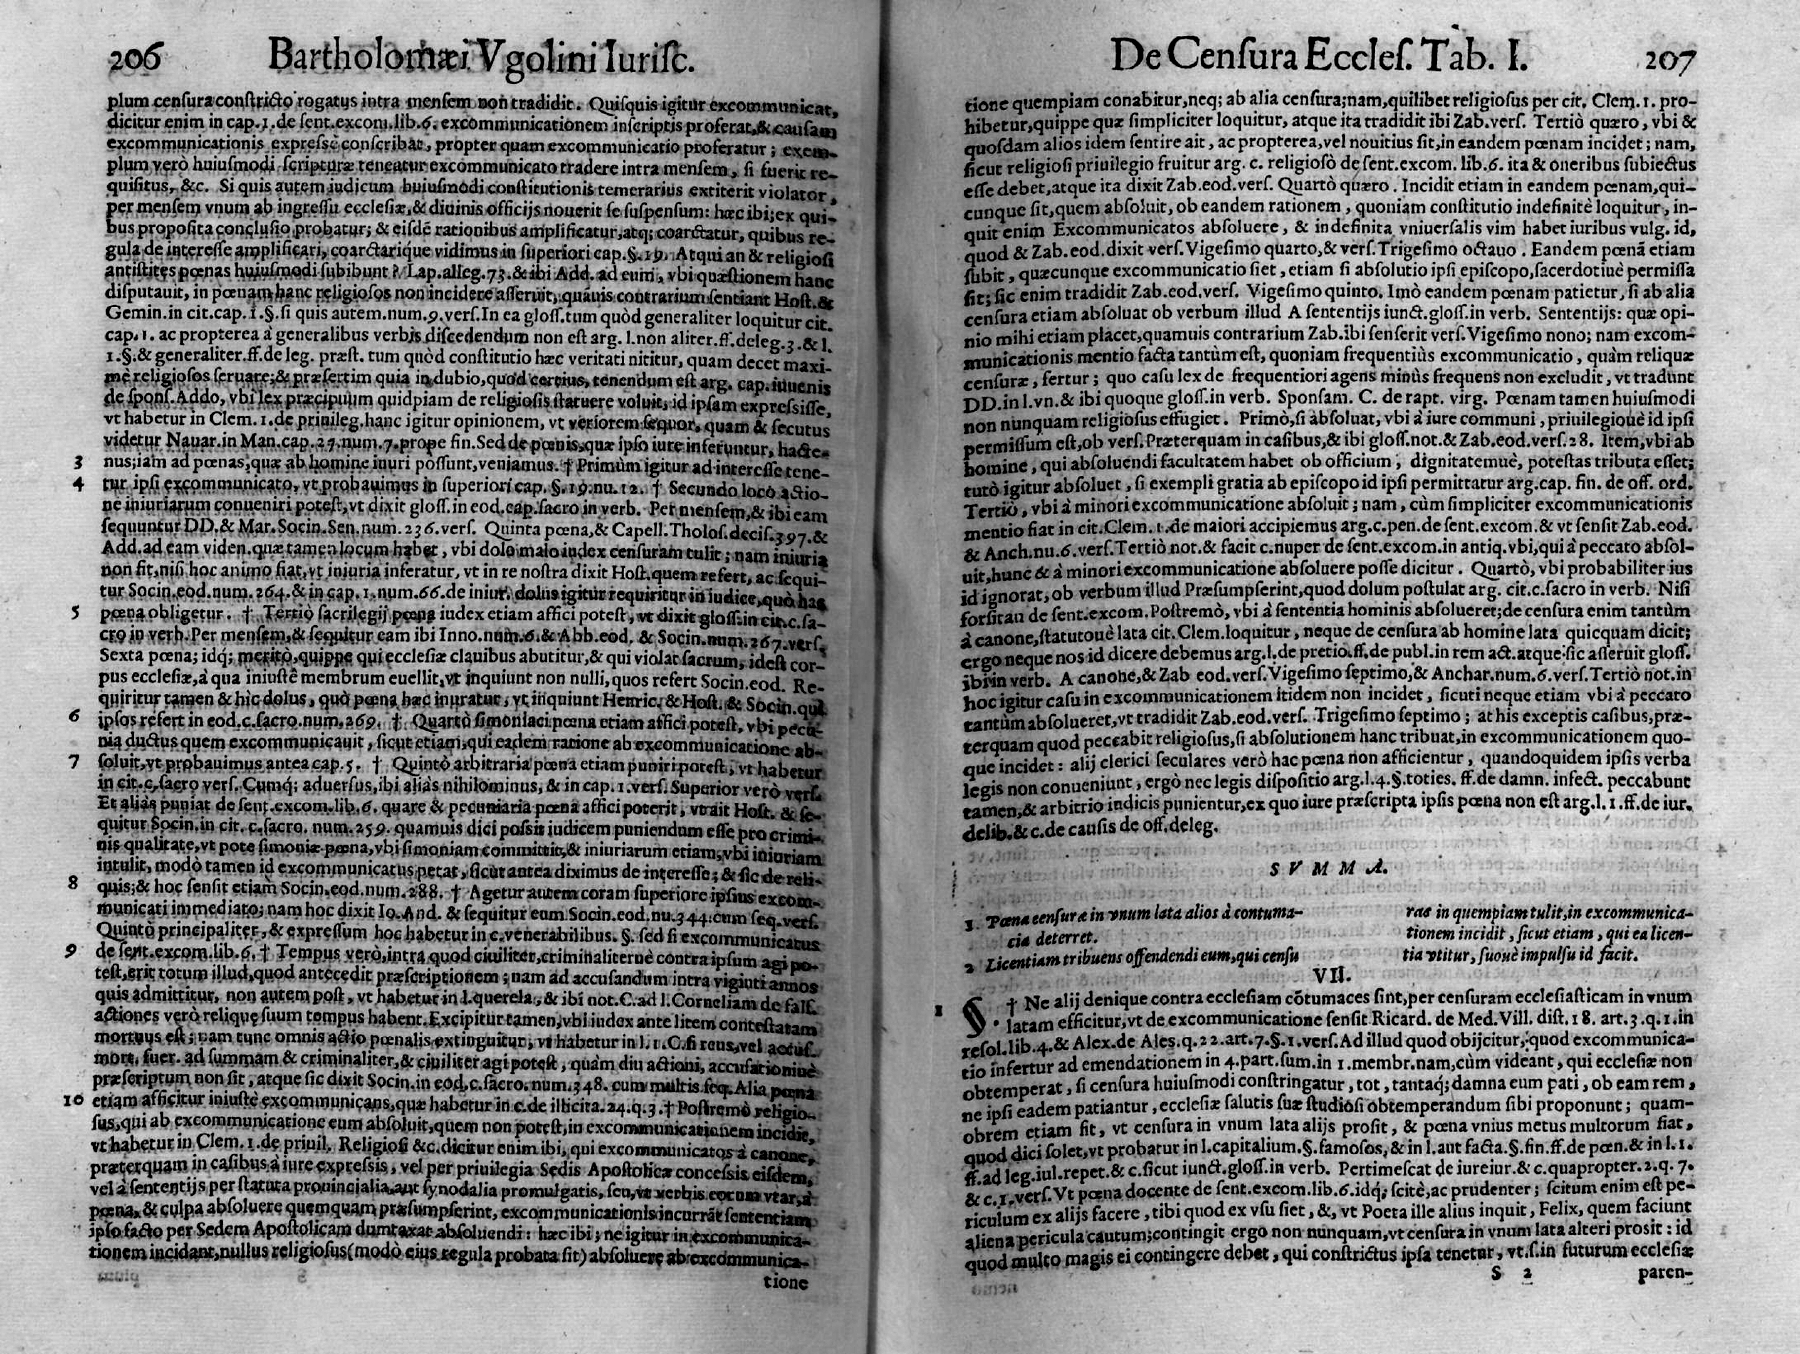 206 Bartholomæi Vgolini Iurisc.
plum censura constricto rogatus intra mensem non tradidit. Quisquis igitur excommunicat,
dicitur enim in cap. 1. de sent. excom. lib. 6. excommunicationem inscriptis proferat, & causam
excommunicationis expressè conscribat, propter quam excommunicatio proferatur; exem-
plum verò huiusmodi scripturæ teneatur excommunicato tradere intra mensem, si fuerit re-
quisitus, &c. Si quis autem iudicum huiusmodi constitutionis temerarius extiterit violator,
per mensem vnum ab ingressu ecclesiæ, & diuinis officijs nouerit se suspensum: hæc ibi; ex qui-
bus proposita conclusio probatur; & eisdẽ rationibus amplificatur, atq; coarctatur, quibus re-
gula de interesse amplificari, coarctarique vidimus in superiori cap. §. 19. Atqui an & religiosi
antistites pœnas huiusmodi subibunt? Lap. alleg. 73. & ibi Add. ad eum, vbi quæstionem hanc
disputauit, in pœnam hanc religiosos non incidere asseruit, quãuis contrarium sentiant Host. &
Gemin. in cit. cap. 1. §. si quis autem. num. 9. vers. In ea gloss. tum quòd generaliter loquitur cit.
cap. 1. ac propterea à generalibus verbis discedendum non est arg. l. non aliter. ff. de leg. 3. & l.
1. §. & generaliter. ff. de leg. præst. tum quòd constitutio hæc veritati nititur, quam decet maxi-
mè religiosos seruare; & præsertim quia in dubio, quod certius, tenendum est arg. cap. iuuenis
de spons. Addo, vbi lex præcipuum quidpiam de religiosis statuere voluit, id ipsam expressisse,
vt habetur in Clem. 1. de priuileg. hanc igitur opinionem, vt veriorem sequor, quam & secutus
videtur Nauar. in Man. cap. 27. num. 7. prope fin. Sed de pœnis, quæ ipso iure inferuntur, hacte-
3 nus; iam ad pœnas, quæ ab homine inuri possunt, veniamus. † Primùm igitur ad interesse tene-
4 tur ipsi excommunicato, vt probauimus in superiori cap. §. 19. nu. 12. † Secundo loco actio-
ne iniuriarum conueniri potest, vt dixit gloss. in eod. cap. sacro in verb. Per mensem, & ibi eam
sequuntur DD. & Mar. Socin. Sen. num. 236. vers. Quinta pœna, & Capell. Tholos. decis. 397. &
Add. ad eam viden. quæ tamen locum habet, vbi dolo malo iudex censuram tulit; nam iniuria
non fit, nisi hoc animo fiat, vt iniuria inferatur, vt in re nostra dixit Host. quem refert, ac sequi-
tur Socin. eod. num. 264. & in cap. 1. num. 66. de iniur. dolus igitur requiritur in iudice, quò hac
5 pœna obligetur. † Tertiò sacrilegij pœna iudex etiam affici potest, vt dixit gloss. in cit. c. sa-
cro in verb. Per mensem, & sequitur eam ibi Inno. num. 6. & Abb. eod. & Socin. num. 267. vers.
Sexta pœna; idq; meritò, quippe qui ecclesiæ clauibus abutitur, & qui violat sacrum, idest cor-
pus ecclesiæ, à qua iniustè membrum euellit, vt inquiunt non nulli, quos refert Socin. eod. Re-
quiritur tamen & hìc dolus, quò pœna hæc inuratur, vt inquiunt Henric. & Host. & Socin. qui
6 ipsos refert in eod. c. sacro. num. 269. † Quartò simoniaci pœna etiam affici potest, vbi pecu-
nia ductus quem excommunicauit, sicut etiam, qui eadem ratione ab excommunicatione ab-
7 soluit, vt probauimus antea cap. 5. † Quintò arbitraria pœna etiam puniri potest, vt habetur
in cit. c. sacro vers. Cumq; aduersus, ibi aliàs nihilominus, & in cap. 1. vers. Superior verò vers.
Et aliàs puniat de sent. excom. lib. 6. quare & pecuniaria pœna affici poterit, vt ait Host. & se-
quitur Socin. in cit. c. sacro. num. 259. quamuis dici possit iudicem puniendum esse pro crimi-
nis qualitate, vt pote simoniæ pœna, vbi simoniam committit, & iniuriarum etiam, vbi iniuriam
intulit, modò tamen id excommunicatus petat, sicut antea diximus de interesse; & sic de reli-
8 quis; & hoc sensit etiam Socin. eod. num. 288. † Agetur autem coram superiore ipsius excom-
municati immediato; nam hoc dixit Io. And. & sequitur eum Socin. eod. nu. 344. cum seq. vers.
Quintò principaliter, & expressum hoc habetur in c. venerabilibus. §. sed si excommunicatus
9 de sent. excom. lib. 6. † Tempus verò, intra quod ciuiliter, criminaliterue contra ipsum agi po-
test, erit totum illud, quod antecedit præscriptionem; nam ad accusandum intra viginti annos
quis admittitur, non autem post, vt habetur in l. querela, & ibi not. C. ad l. Corneliam de fals.
actiones verò reliquę suum tempus habent. Excipitur tamen, vbi iudex ante litem contestatam
mortuus est; nam tunc omnis actio pœnalis extinguitur, vt habetur in l. 1. C. si reus, vel accus.
mort. fuer. ad summam & criminaliter, & ciuiliter agi potest, quàm diu actioni, accusationiuè
præscriptum non sit, atque sic dixit Socin. in eod. c. sacro. num. 348. cum multis seq. Alia pœna
10 etiam afficitur iniustè excommunicans, quæ habetur in c. de illicita. 24. q. 3. † Postremò religio-
sus, qui ab excommunicatione eum absoluit, quem non potest, in excommunicationem incidit,
vt habetur in Clem. 1. de priuil. Religiosi &c. dicitur enim ibi, qui excommunicatos à canone,
præterquam in casibus à iure expressis, vel per priuilegia Sedis Apostolicæ concessis eisdem,
vel à sententijs per statuta prouincialia, aut synodalia promulgatis, seu, vt verbis eorum vtar, à
pœna, & culpa absoluere quemquam præsumpserint, excommunicationis incurrãt sententiam
ipso facto per Sedem Apostolicam dumtaxat absoluendi: hæc ibi; ne igitur in excommunica-
tionem incidant, nullus religiosus (modò eius regula probata sit) absoluere ab excommunica-
tione
De Censura Eccles. Tab. I. 207
tione quempiam conabitur, neq; ab alia censura; nam, quilibet religiosus per cit. Clem. 1. pro-
hibetur, quippe quæ simpliciter loquitur, atque ita tradidit ibi Zab. vers. Tertiò quæro, vbi &
quosdam alios idem sentire ait, ac propterea, vel nouitius sit, in eandem pœnam incidet; nam,
sicut religiosi priuilegio fruitur arg. c. religiosò de sent. excom. lib. 6. ita & oneribus subiectus
esse debet, atque ita dixit Zab. eod. vers. Quartò quæro. Incidit etiam in eandem pœnam, qui-
cunque sit, quem absoluit, ob eandem rationem, quoniam constitutio indefinitè loquitur, in-
quit enim Excommunicatos absoluere, & indefinita vniuersalis vim habet iuribus vulg. id,
quod & Zab. eod. dixit vers. Vigesimo quarto, & vers. Trigesimo octauo. Eandem pœnã etiam
subit, quæcunque excommunicatio siet, etiam si absolutio ipsi episcopo, sacerdotiuè permissa
sit; sic enim tradidit Zab. eod. vers. Vigesimo quinto. Imò eandem pœnam patietur, si ab alia
censura etiam absoluat ob verbum illud A sententijs iunct. gloss. in verb. Sententijs: quæ opi-
nio mihi etiam placet, quamuis contrarium Zab. ibi senserit vers. Vigesimo nono; nam excom-
municationis mentio facta tantùm est, quoniam frequentiùs excommunicatio, quàm reliquæ
censuræ, fertur; quo casu lex de frequentiori agens minùs frequens non excludit, vt tradunt
DD. in l. vn. & ibi quoque gloss. in verb. Sponsam. C. de rapt. virg. Pœnam tamen huiusmodi
non nunquam religiosus effugiet. Primò, si absoluat, vbi à iure communi, priuilegiouè id ipsi
permissum est, ob vers. Præterquam in casibus, & ibi gloss. not. & Zab. eod. vers. 28. Item, vbi ab
homine, qui absoluendi facultatem habet ob officium, dignitatemuè, potestas tributa esset;
tutò igitur absoluet, si exempli gratia ab episcopo id ipsi permittatur arg. cap. fin. de off. ord.
Tertiò, vbi à minori excommunicatione absoluit; nam, cùm simpliciter excommunicationis
mentio fiat in cit. Clem. 1. de maiori accipiemus arg. c. pen. de sent. excom. & vt sensit Zab. eod.
& Anch. nu. 6. vers. Tertiò not. & facit c. nuper de sent. excom. in antiq. vbi, qui à peccato absol-
uit, hunc & à minori excommunicatione absoluere posse dicitur. Quartò, vbi probabiliter ius
id ignorat, ob verbum illud Præsumpserint, quod dolum postulat arg. cit. c. sacro in verb. Nisi
forsitan de sent. excom. Postremò, vbi à sententia hominis absolueret; de censura enim tantùm
à canone, statutouè lata cit. Clem. loquitur, neque de censura ab homine lata quicquam dicit;
ergo neque nos id dicere debemus arg. l. de pretio. ff. de publ. in rem act. atque sic asseruit gloss.
ibi in verb. A canone, & Zab eod. vers. Vigesimo septimo, & Anchar. num. 6. vers. Tertiò not. in
hoc igitur casu in excommunicationem itidem non incidet, sicuti neque etiam vbi à peccato
tantùm absolueret, vt tradidit Zab. eod. vers. Trigesimo septimo; at his exceptis casibus, præ-
terquam quod peccabit religiosus, si absolutionem hanc tribuat, in excommunicationem quo-
que incidet: alij clerici seculares verò hac pœna non afficientur, quandoquidem ipsis verba
legis non conueniunt, ergò nec legis dispositio arg. l. 4. §. toties. ff. de damn. infect. peccabunt
tamen, & arbitrio iudicis punientur, ex quo iure præscripta ipsis pœna non est arg. l. 1. ff. de iur.
delib. & c. de causis de off. deleg.
SVMMA.
1 Pœna censuræ in vnum lata alios à contuma-
cia deterret.
2 Licentiam tribuens offendendi eum, qui censu
ræ in quempiam tulit, in excommunica-
tionem incidit, sicut etiam, qui ea licen-
tia vtitur, suouè impulsu id facit.
VII.
1 §. † Ne alij denique contra ecclesiam cõtumaces sint, per censuram ecclesiasticam in vnum
latam efficitur, vt de excommunicatione sensit Ricard. de Med. Vill. dist. 18. art. 3. q. 1. in
resol. lib. 4. & Alex. de Ales. q. 22. art. 7. §. 1. vers. Ad illud quod obijcitur, quod excommunica-
tio infertur ad emendationem in 4. part. sum. in 1. membr. nam, cùm videant, qui ecclesiæ non
obtemperat, si censura huiusmodi constringatur, tot, tantaq; damna eum pati, ob eam rem,
ne ipsi eadem patiantur, ecclesiæ salutis suæ studiosi obtemperandum sibi proponunt; quam-
obrem etiam fit, vt censura in vnum lata alijs profit, & pœna vnius metus multorum fiat,
quod dici solet, vt probatur in l. capitalium. §. famosos, & in l. aut facta. §. fin. ff. de pœn. & in l. 1.
ff. ad leg. iul. repet. & c. sicut iunct. gloss. in verb. Pertimescat de iureiur. & c. quapropter. 2. q. 7.
& c. 1. vers. Vt pœna docente de sent. excom. lib. 6. idq; scitè, ac prudenter; scitum enim est pe-
riculum ex alijs facere, tibi quod ex vsu siet, &, vt Poeta ille alius inquit, Felix, quem faciunt
aliena pericula cautum; contingit ergo non nunquam, vt censura in vnum lata alteri prosit: id
quod multo magis ei contingere debet, qui constrictus ipsa tenetur, vt. s. in futurum ecclesiæ
S 2 paren-